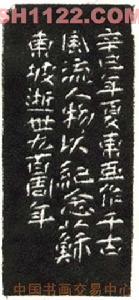 SH1122.COM
辛巳年夏东画作千古
风流人物以纪念苏
东坡逝世九百周年
中国书画交易中心